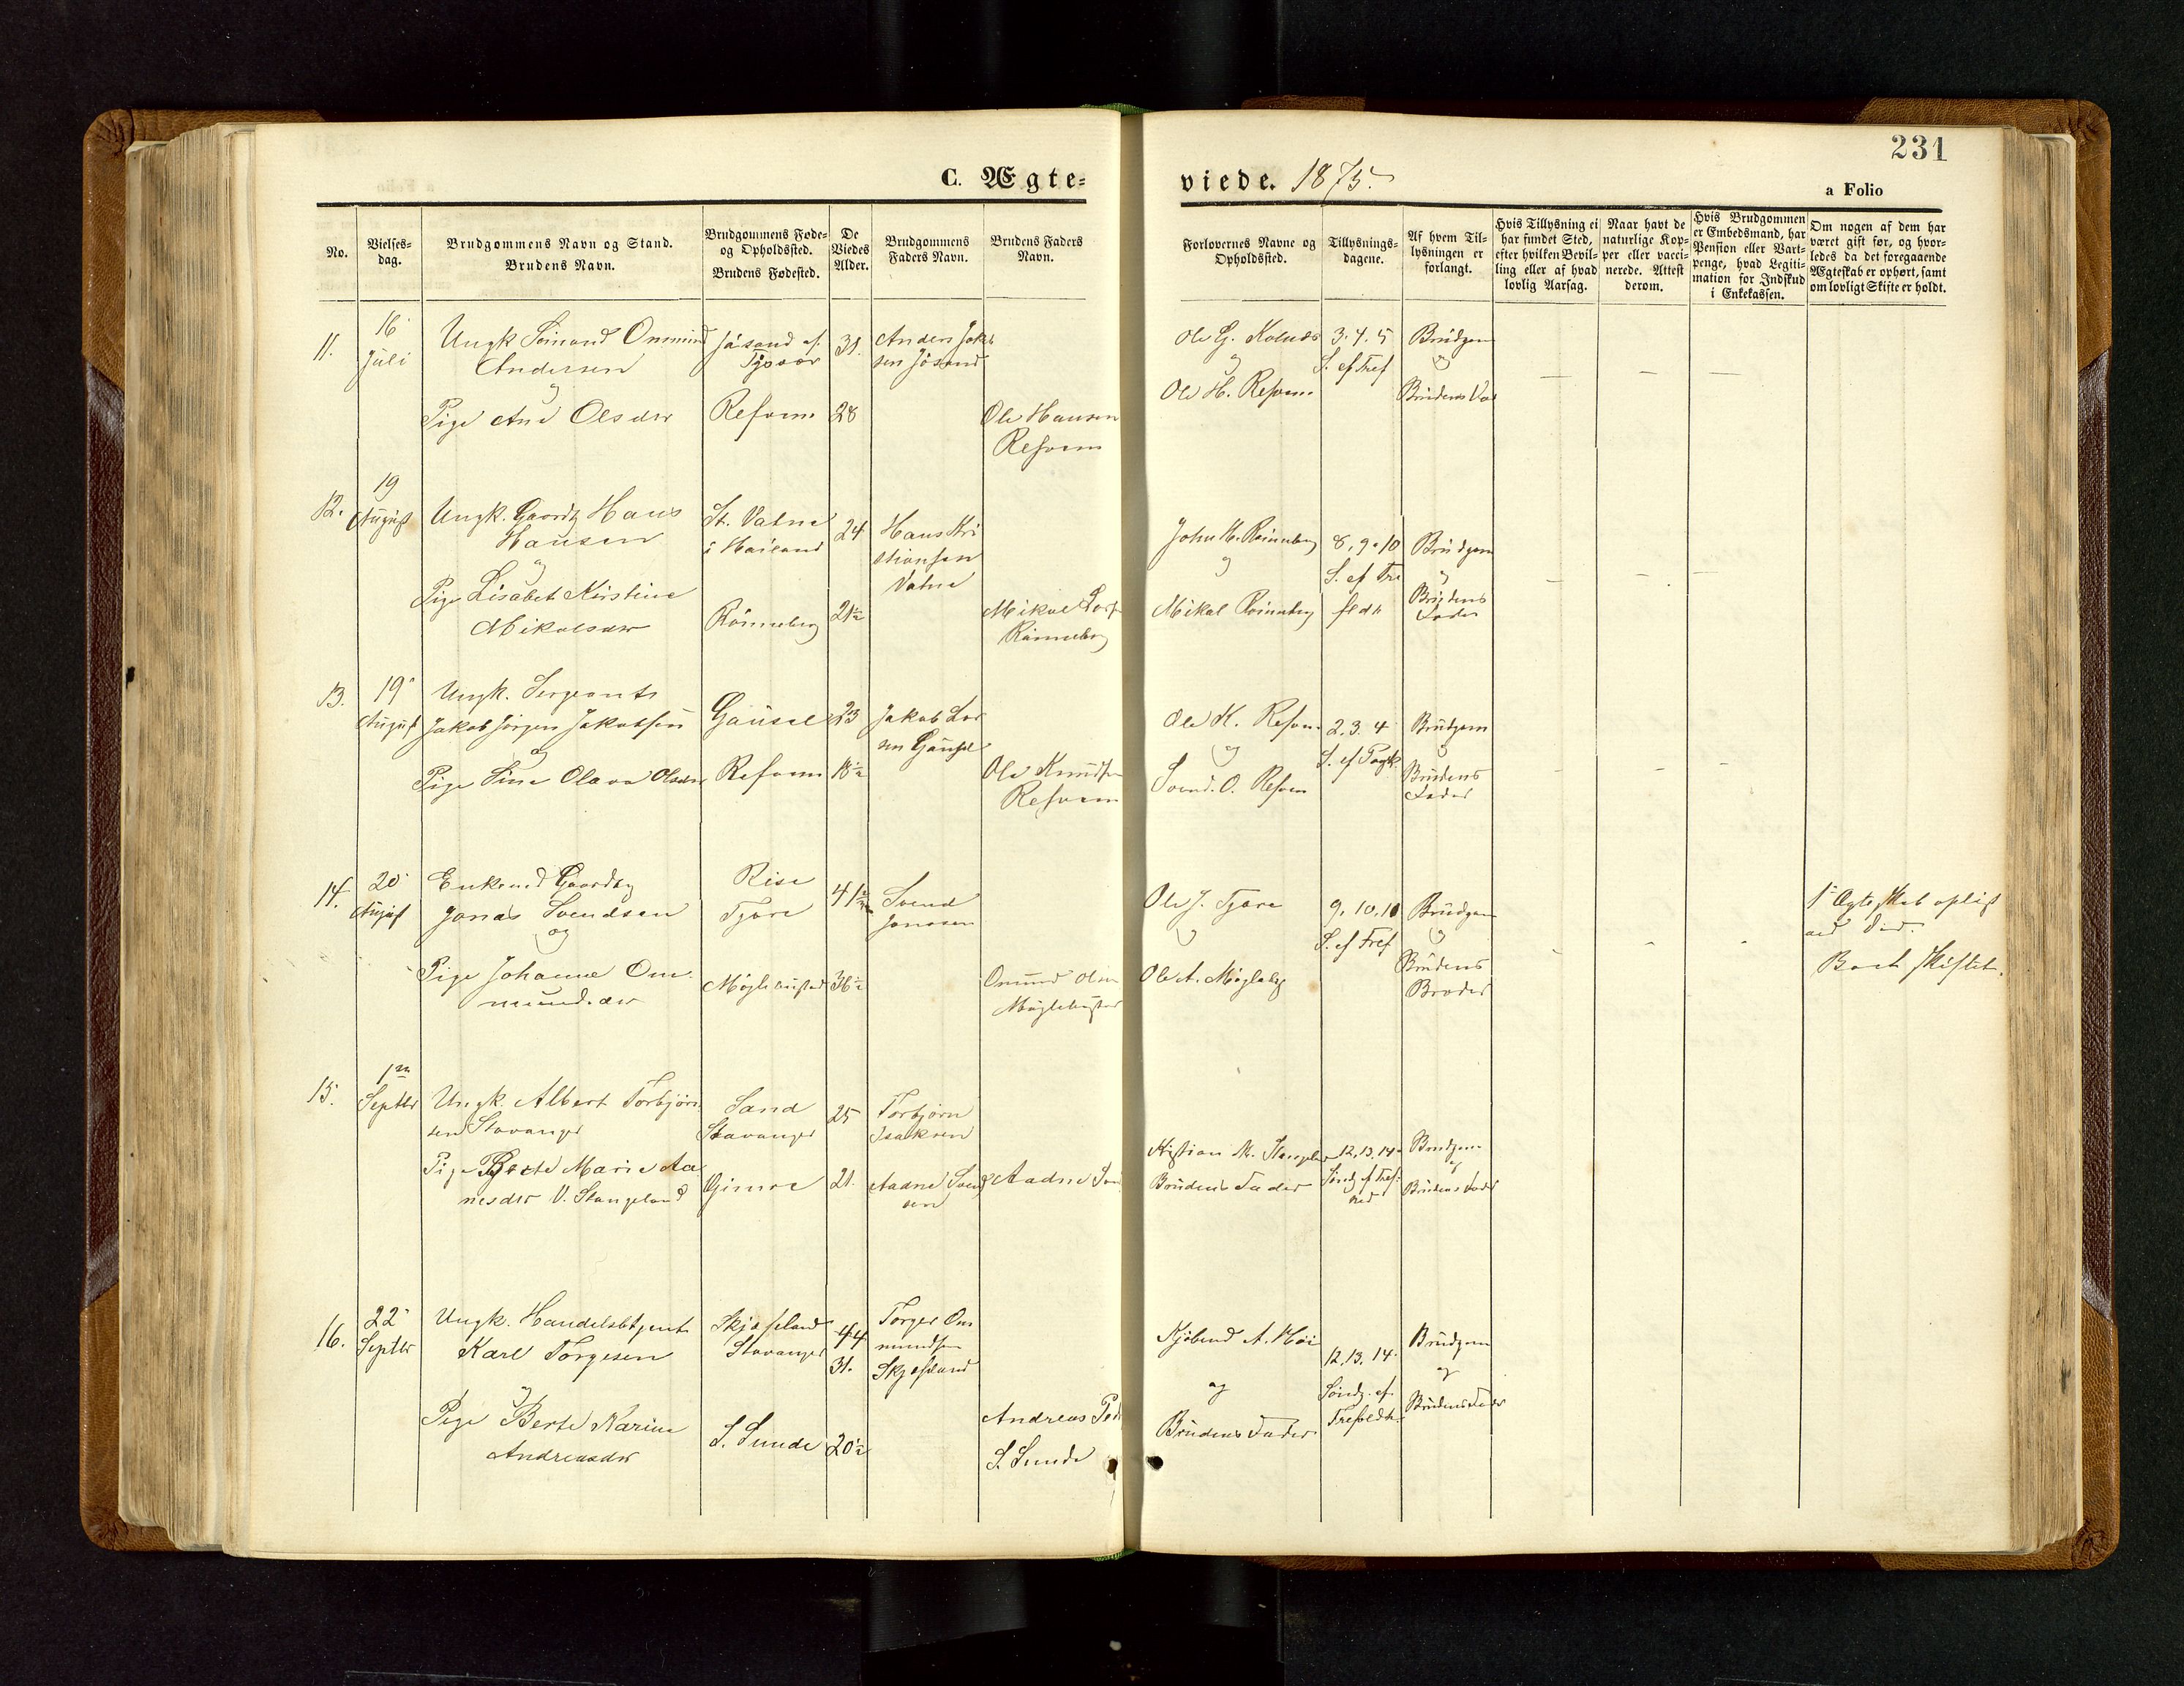 231
C. Ægte=
viede. 1875.
a Folio
No.
Vielses=
dag.
Brudgommens Navn og Stand.
Brudens Navn.
Brudgommens Føde=
og Opholdssted.
Brudens Fødested.
De
Viedes
Alder.
Brudgommens
Faders Navn.
Brudens Faders
Navn.
Forlovernes Navne og
Opholdssted.
Tillysnings=
dagene.
Af hvem Til=
lysningen er
forlangt.
Hvis Tillysning ei
har fundet Sted,
efter hvilken Bevil=
ling eller af hvad
lovlig Aarsag.
Naar havt de
naturlige Kop=
per eller vacci=
nerede. Attest
derom.
Hvis Brudgommen
er Embedsmand, har
Pension eller Vart=
penge, hvad Legiti=
mation for Indskud
i Enkekassen.
Om nogen af dem har
været gift før, og hvor=
ledes da det foregaaende
Ægteskab er ophørt, samt
om lovligt Skifte er holdt.
11.
16
Juli
Ungk
Andersen
og
Pige Ane Olsdtr
Jåsund af
Refsnes
31.
28
Anders Jakob
sen Jåsund
Ole Hansen
Refsnes
Ole G.
og
Ole H. Refsnes
3. 4. 5
S. ef Tref
Brudgom
og
Brudens
12.
19
August
Ungk. Gaardbr Hans
Hansen
og
Pige Lisabet Kirstine
Mikalsdtr
St. Vatne
i
Rønneberg
24
21½
Hans Kri
stiansen
Vatne
Mikael
Rønneberg
John M. Rønneberg
og
Mikal Rønneberg
8. 9. 10
S. ef Tre
Brudgom
og
Brudens
Fader
13.
19
August
Ungk. Sergeant
Jakob Jørgen Jakobsen
og
Pige Sine Olava Olsdtr
Gausel
Refsnes
23
18½
Jakob Lar
sen Gausel
Ole Knudsen
Refsnes
Ole K. Refsnes
og
Svend. O. Refsnes
2. 3. 4
S. ef
Brudgom
og
Brudens
Fader
14.
20
August
Enkemd Gaardbr
Jonas Svendsen
og
Pige Johanne Om
mundsdtr
Rise
Tjore
41½
36½
Svend
Jonasen
Omund Olsen
Ole J. Tjora
og
Ole A.
9. 10. 11
S. ef Tref
Brudgom
og
Brudens
Broder
1ste Ægteskab opløst
ved Død.
Boet skiftet.
15.
1ste
Septbr
Ungk. Albert Torbjørn
sen Stavanger
Pige Berte Marie Aa
nesdtr V. Stangeland
Sand
Stavanger
Gimre
25
21
Torbjørn
Isaksen
Aadne Svend
sen
Aadne
Kristian M. Stangeland
Brudens Fader
12. 13. 14
Sønd. ef Tref.
Brudgom
og
Brudens Fader
16.
22
Septbr
Ungk. Handelsbetjent
Karl Torgesen
og
Pige Berte Karine
Andreasdtr
Skjæfeland
Stavanger
S. Sunde
44
31.
20½
Torger Om
mundsen
Skjæfeland
Andreas
S. Sunde
Kjøbmd A. Høie
og
Brudens Fader
12. 13. 14
Sønd. ef
Brudgom
og
Brudens Fader